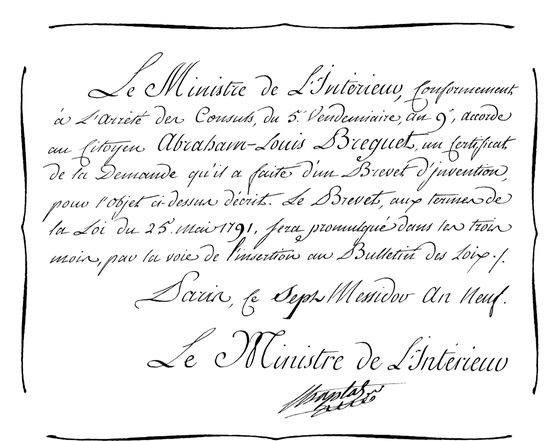 Le Ministre de L'Intérieur, Conformément
à L'arrêté des Consuls, du 5. Vendémiaire, an 9e, accorde
au Citoyen Abraham-Louis Breguet, un Certificat
de la Demande qu'il a faite d'un Brevet d'jnvention,
pour l'objet ci-dessus décrit. Le Brevet, aux termes de
la Loi du 25. mai 1791. sera promulgué dans les trois
mois, par la voie de l'insertion au Bulletin des Loix./.
Paris, Ce Sept Messidor An Neuf.
Le Ministre de L'Intérieur
Chaptal